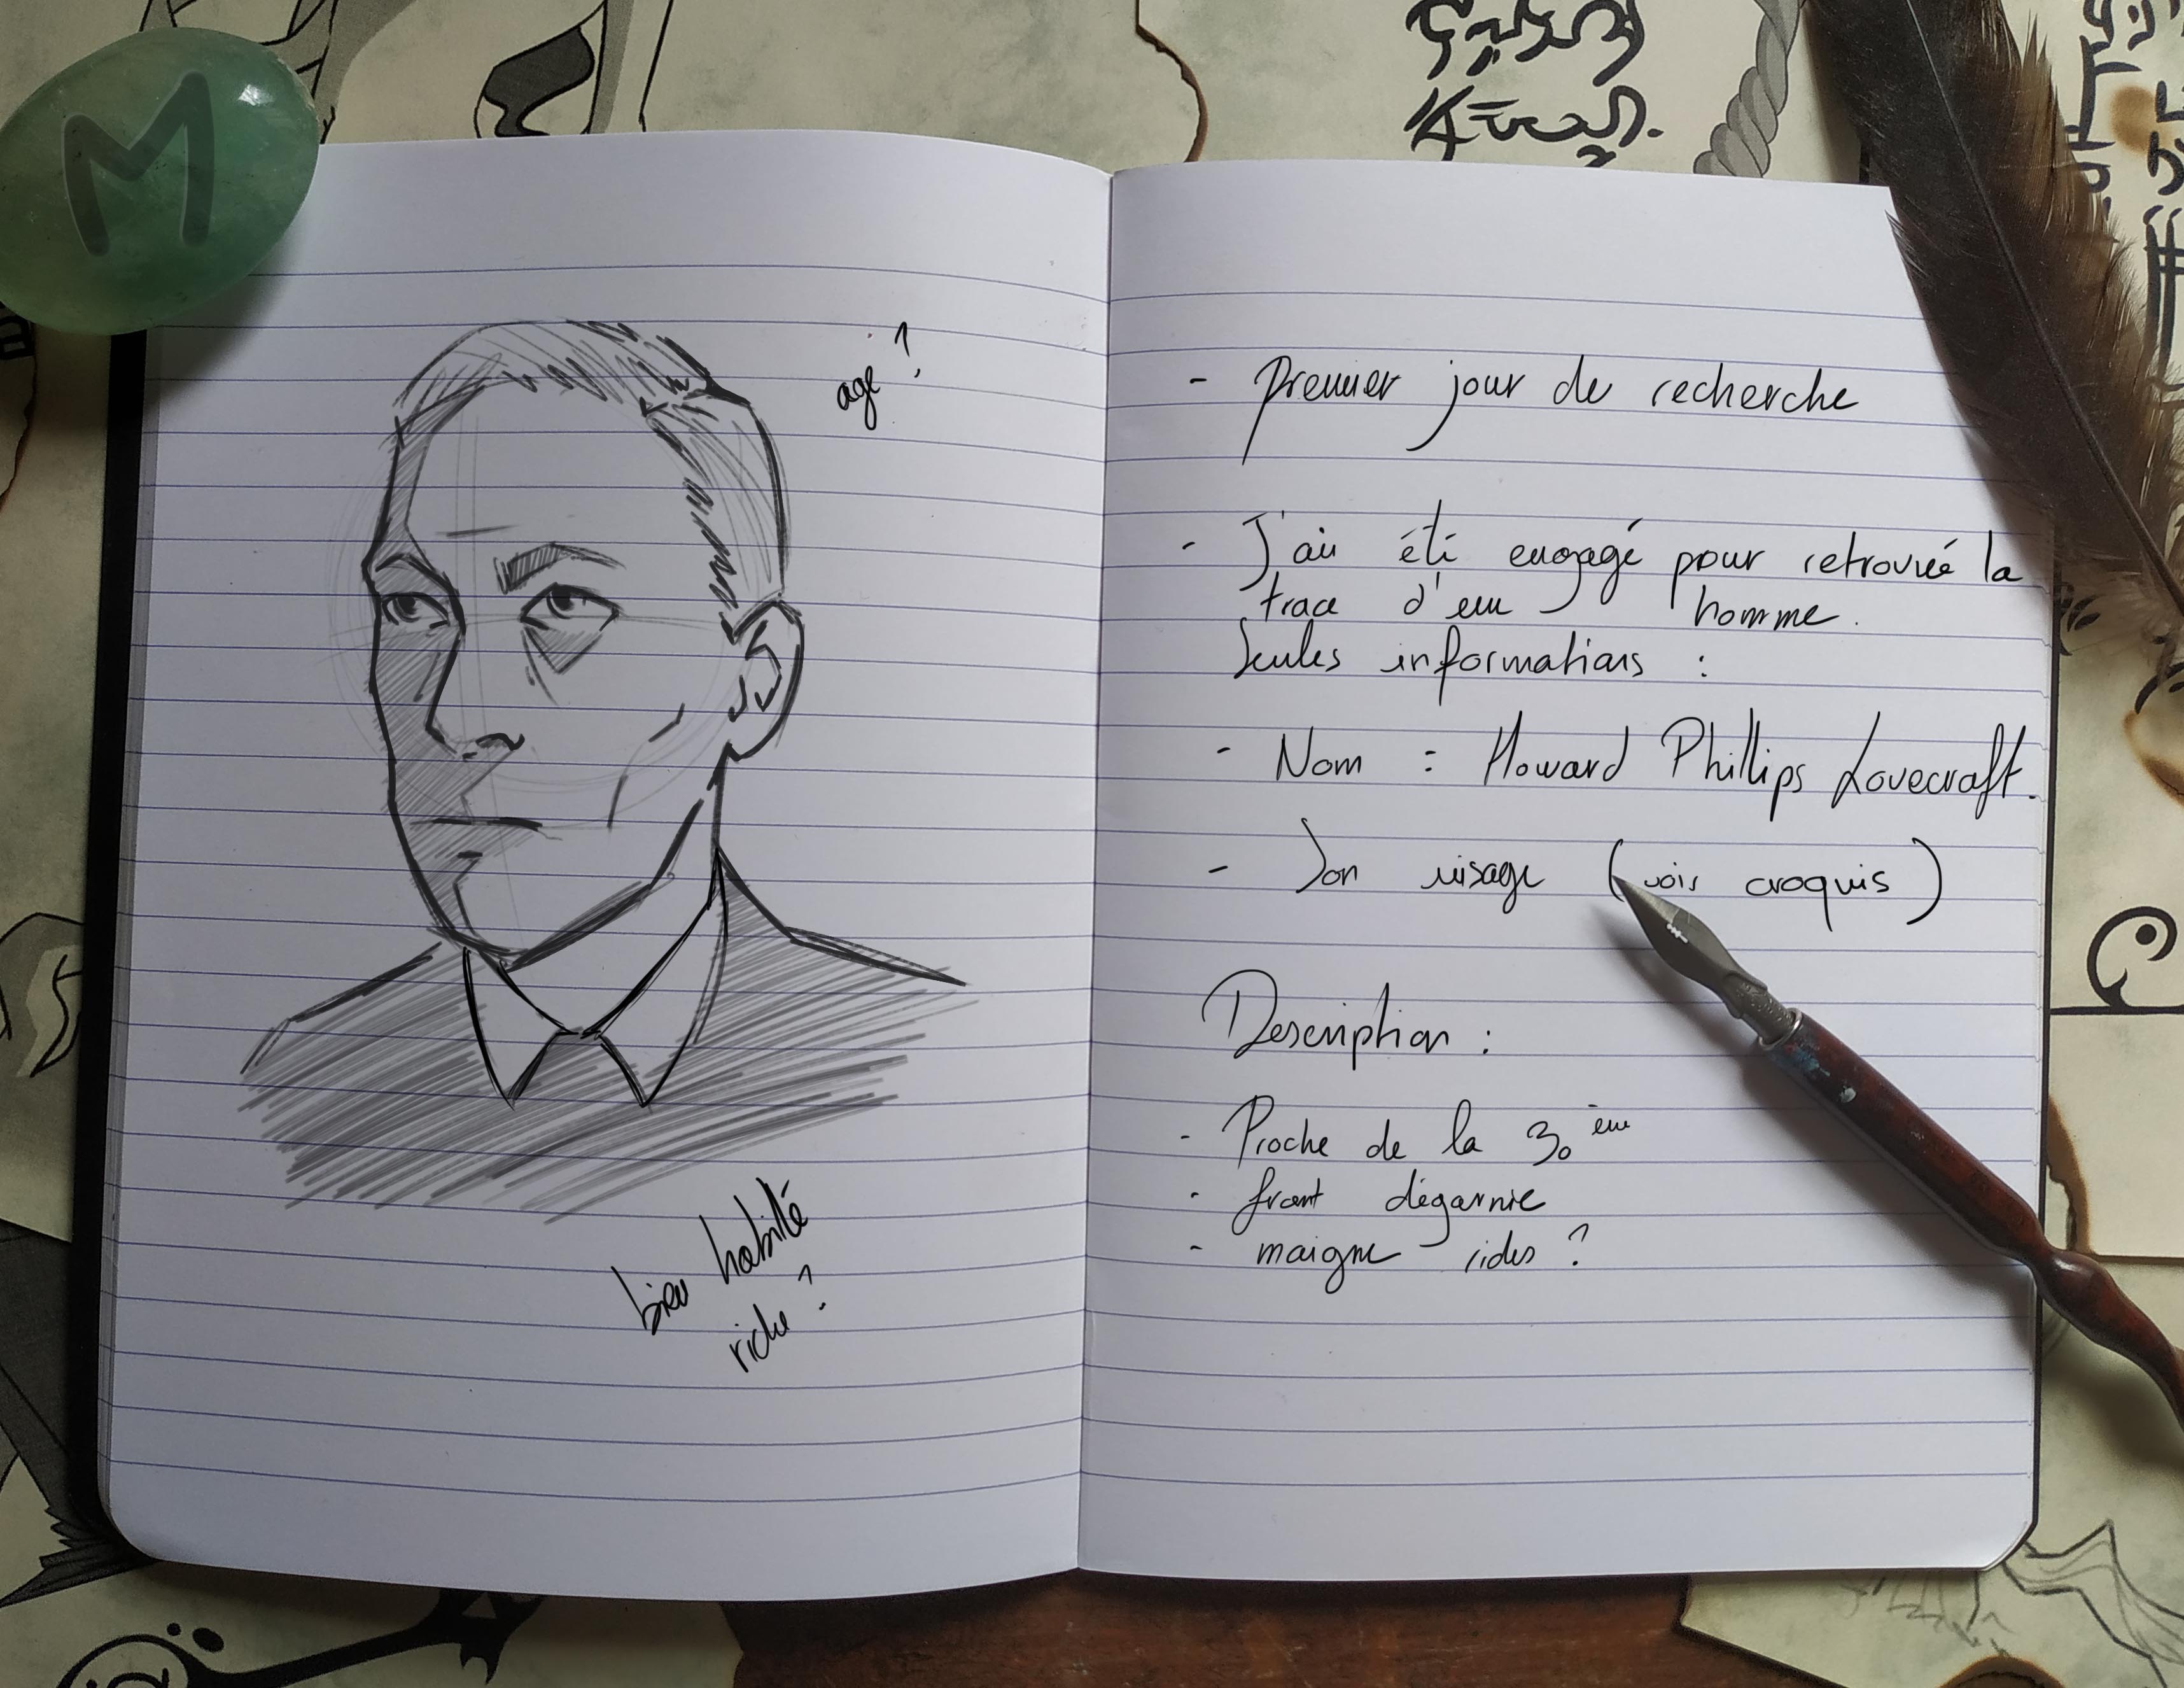 M
age ?
bien habillé
riche ?
- premier jour de recherche
- J'ai été engagé pour retrouvé la
trace d'un homme.
Seules informations :
- Nom : Howard Phillips Lovecraft.
- Son visage (voir croquis)
Description :
- Proche de la 30ème
- front dégarnie
- maigne rides ?